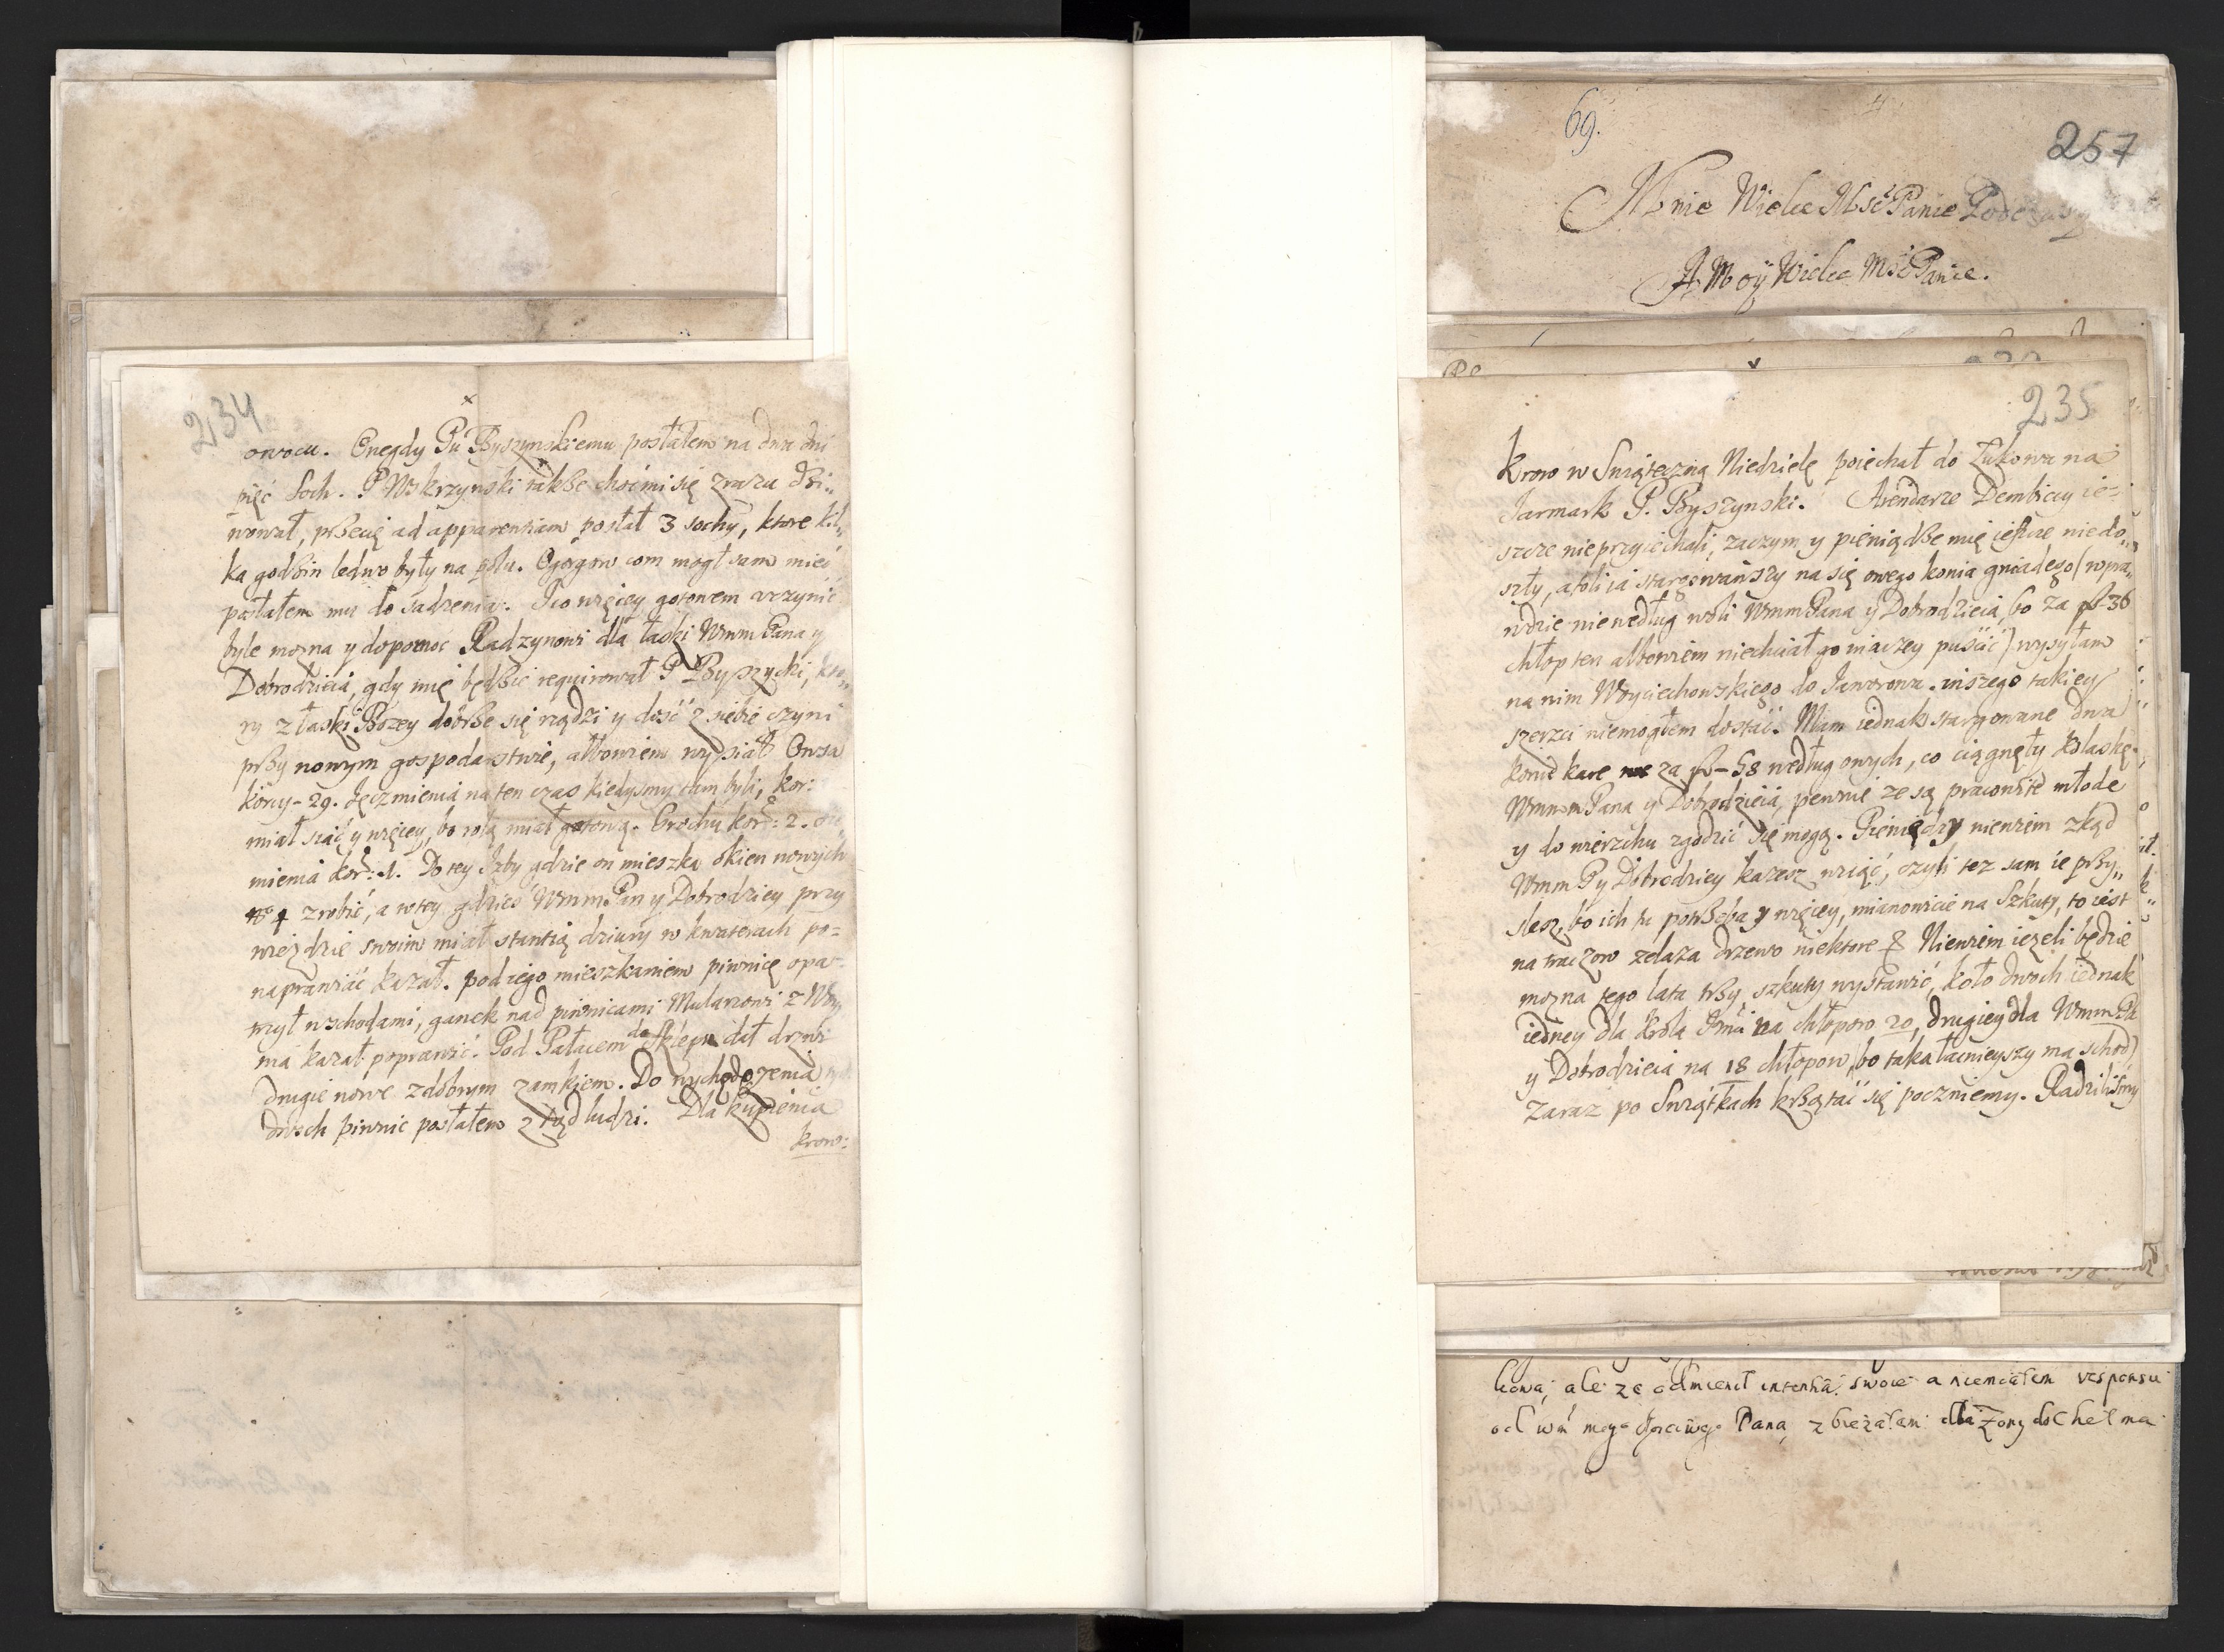 234
owocu. Onegdy Pu Byszynskiemu posłałem na dwa dni
pięć Soch. P Wskrzynski takße choć mi się zrazu dzi„
wował, przecię ad apparentiam posłał 3 sochy, ktore kil„
ka godßin ledwo były na polu. Ogorgow com mogł sam mieć
posłałem mu do sadzenia. I co więcey gotowem vczynić
byle mozna y dopomoc Radzynowi dla łaski Wmm Pana y
Dobrodzieia, gdy mię będßie requirował P Byszycki, kto„
ry z łaski Bozey dobrße się rządzi y dość z siebie czyni
prßy nowym gospodarstwie, albowiem wysiał Owsa
korcy - 29. Jęczmienia na ten czas kiedysmy tam byli, kor:
miał siać y więcey, bo rolą miał gotową. Grochu kor: 2.
mienia kor: 1. Do tey Izby gdzie on mieszka okien nowych
No 4 zrobić, a w tey gdzieś Wmm Pan y Dobrodziey przy
wieździe swoim miał stantią dziury w kwaterach po=
naprawiać kazał. pod iego mieszkaniem piwnicę opa„
trzył wschodami, ganek nad piwnicami Mularzowi z
ma kazał poprawić. Pod Pałacem do sklepu dał drzwi
drugie nowe z dobrym zamkiem. Do wychędożenia
dwoch piwnic posłałem z tąd ludzi. Dla kupienia
krow:
69.
257
Mnie Wielce Msć Panie Podczaszy
A Moÿ Wielce Msć Panie.
235
Krow w Swiąteczną Niedzielę poiechał do Łukowa na
Jarmark P. Byszynski. Arendarze Dembiccy ie=
szcze nie przyiechali, zaczym y pieniądße mię ieszcze niedo„
szły, a toli ia stargowawszy na się owego konia gniadego (wpra„
wdzie nie według woli Wmm Pana y Dobrodzieia, bo za fl-36
chłop ten albowiem niechciał go inaczey puścić) wysyłam
na nim Woyciechowskiego do Jaworowa. inszego takiey
szerzci niemogłem dostać. Mam iednak stargowane dwa
konie kare za fl-58 według owych, co ciągnęły kolaskę
Wmm Pana y Dobrodzieia, pewnie ze są pracowite młode
y do wierzchu zgodzić się mogą. Pieniędzy niewiem zkąd
Wmm P y Dobrodziey kazesz wziąć, czyli tez sam ie prßy„
slesz, bo ich tu potrßeba y więcey, mianowicie na Szkuty, to iest
na traczow zelaza drzewo niektore &. Niewiem iezeli będzie
mozna tego lata trßy szkuty wystawić, koło dwoch iednak
iedney dla Krola Jmci na chłopow 20, drugiey dla Wmm Pa
y Dobrodzieia na 18 chłopow (bo taka łacnieyszy ma schod)
Zaraz po Swiątkach krßątać się poczniemy. Radzilismy
ale ze odmienił intentia swoie a niemiałem responsu
od wm mego Pana, zbieżałem dla żony do Chełma